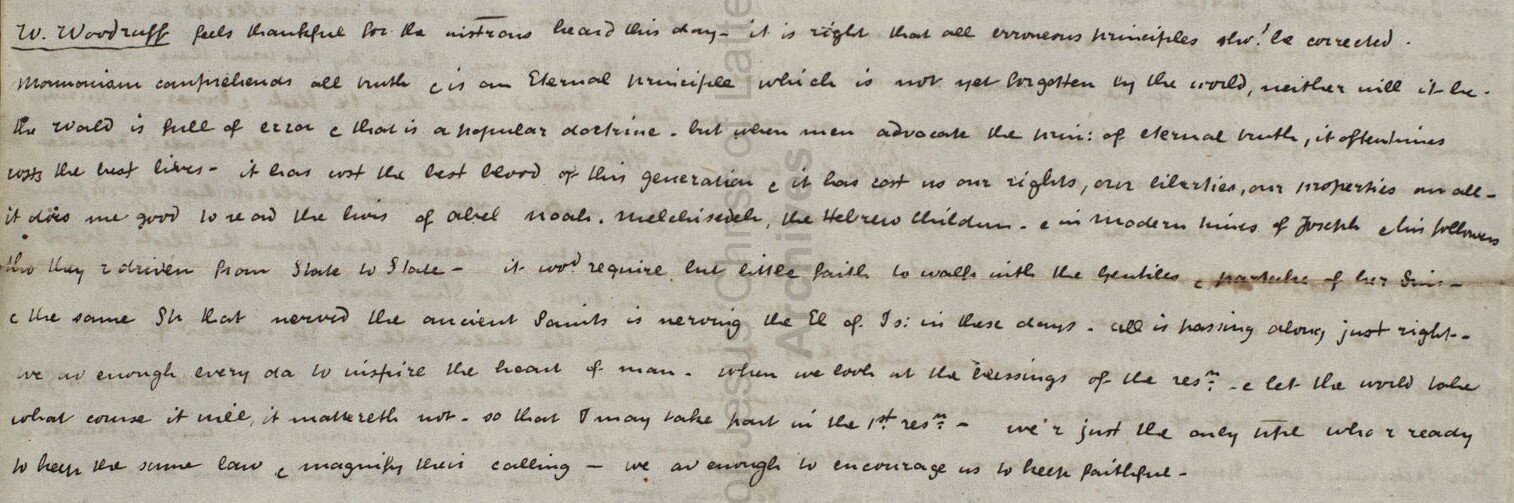 W. Woodruff feels thankful for the instrons heard this day - it is right that all erroneous principles shod. be corrected.
Mormonism comprehends all truth & is an Eternal principle which is not yet forgotten by the world, neither will it be.
the world is full of error & that is a popular doctrine - but when men advocate the prin: of eternal truth, it oftentimes
costs the best lives - it has cost the best blood of this generation & it has cost us our rights, our liberties, our properties our all -
it does me good to read the lives of Abel Noah. Melchisedek, the Hebrew Children. & in modern times of Joseph & his followers
tho they r driven from State to State - it wod require but little faith to walk with the Gentiles & partake of her Sins -
& the same Sp that nerved the ancient Saints is nerving the El of Is: in these days - all is passing along just right -
we av enough every da to inspire the heart of man. when we look at the blessings of the resn: - & let the world take
what course it will, it mattereth not - so that I may take part in the 1st. resn: - we'r just the only who r ready
to keep the same law & magnify their calling - we av enough to encourage us to keep faithful -
of Jesus Christ of Latte
Archives